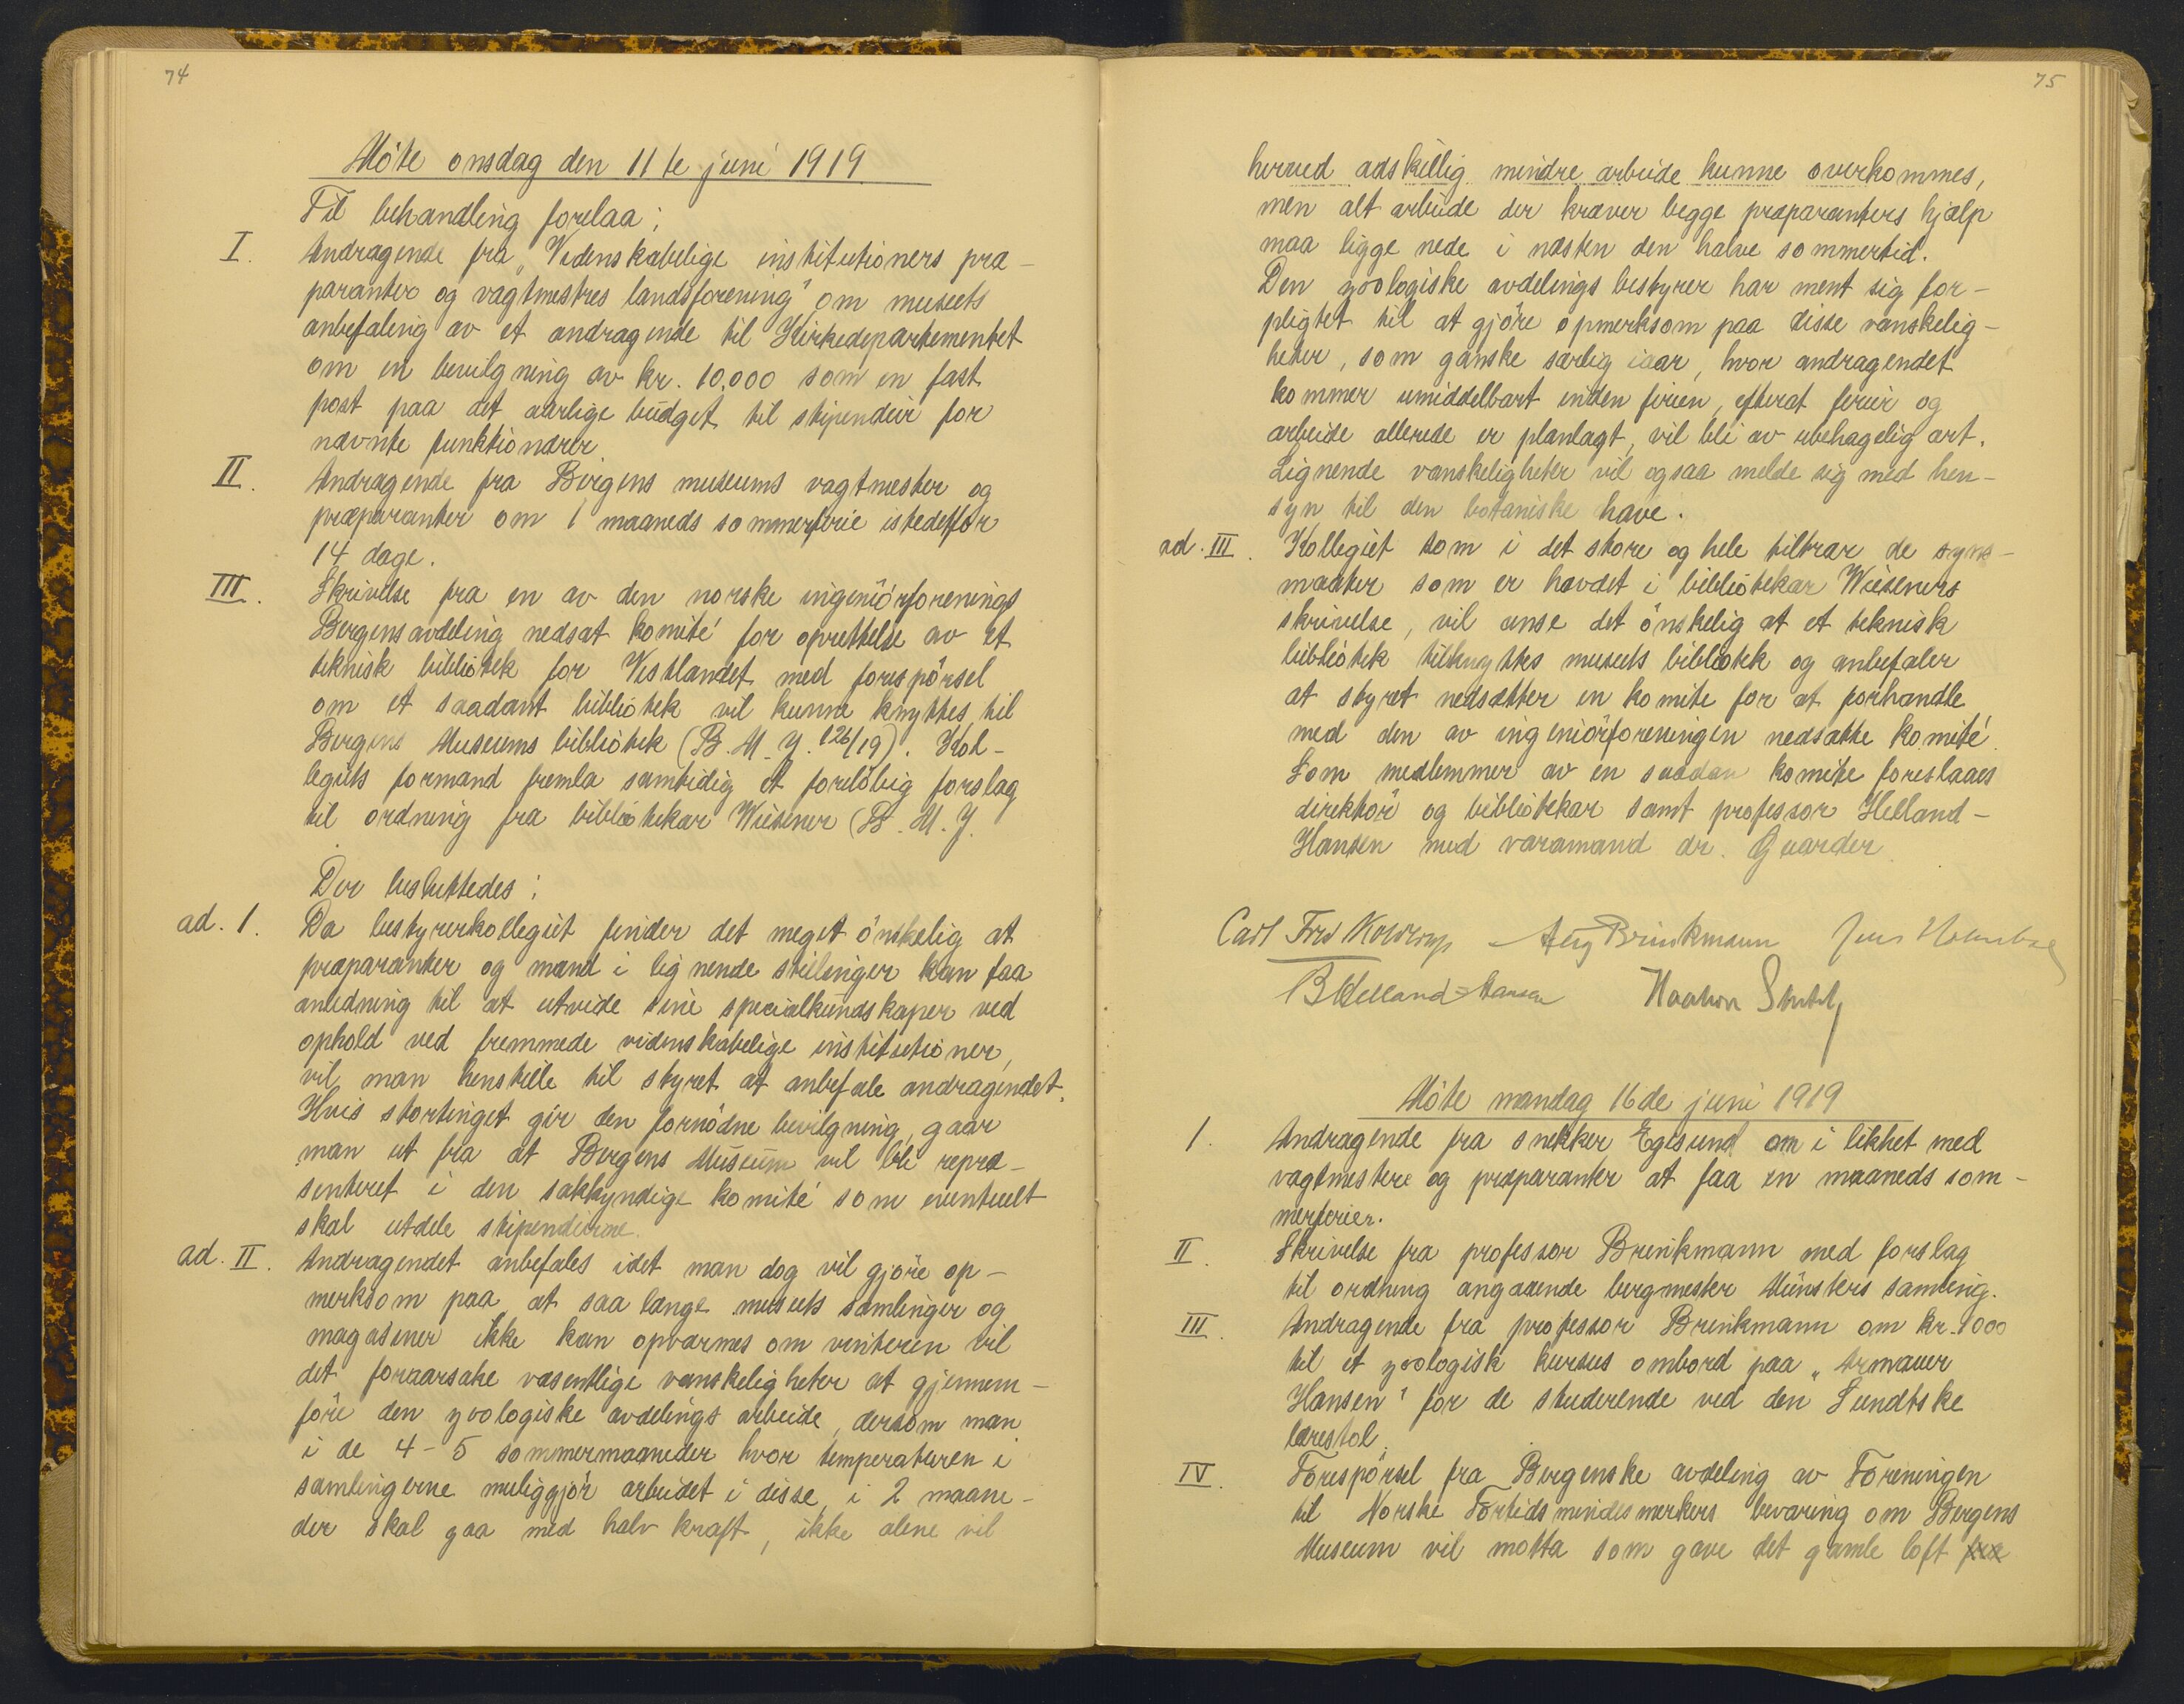 74
Möte onsdag den 11te juni 1919
Til behandling forelaa:
I. Andragende fra „Videnskabelige institutioners præ-
paranter og vagtmestres landsforening" om museets
anbefaling av et andragende til Kirkedepartementet
om en bevilgning av kr. 10.000 som en fast
post paa det aarlige budget til stipendier for
nævnte funktionærer
II. Andragende fra Bergens museums vagtmester og
præparanter om 1 maaneds sommerferie istedetfor
14 dage.
III. Skrivelse fra en av den norske ingeniörforenings
Bergensavdeling nedsat komité for oprettelse av et
teknisk bibliotek for Vestlandet med forespörsel
om et saadant bibliotek vil kunne knyttes til
Bergens Museums bibliotek (B.M.J. 126/19). Kol-
legiets formand fremla samtidig et forelöbig forslag
til ordning fra bibliotekar Wiesener (B.M.J.
Der besluttedes:
ad. 1. Da bestyrerkollegiet finder det meget önskelig at
præparanter og mænd i lignende stillinger kan faa
anledning til at utvide sine specialkundskaper ved
ophold ved fremmede videnskabelige institutioner,
vil man henstille til styret at anbefale andragendet.
Hvis stortinget gir den fornödne bevilgning, gaar
man ut fra at Bergens Museum vil bli repræ-
senteret i den sakkyndige komité som eventuelt
skal utdele stipendierne.
ad. II. Andragendet anbefales idet man dog vil gjöre op-
merksom paa at saa længe museets samlinger og
magasiner ikke kan opvarmes om vinteren vil
det foraarsake væsentlige vanskeligheter at gjennem-
före den zoologiske avdelings arbeide, dersom man
i de 4-5 sommermaaneder hvor temperaturen i
samlingerne muliggjör arbeidet i disse, i 2 maane-
der skal gaa med halv kraft, ikke alene vil
75
herved adskillig mindre arbeide kunne overkommes,
men alt arbeide der kræver begge præparanters hjælp
maa ligge nede i næsten den halve sommertid.
Den zoologiske avdelings bestyrer har ment sig for-
pligtet til at gjöre opmerksom paa disse vanskelig-
heter, som ganske særlig iaar, hvor andragendet
kommer umiddelbart inden ferien, efterat ferier og
arbeide allerede er planlagt, vil bli av ubehagelig art.
Lignende vanskeligheter vil ogsaa melde sig med hen-
syn til den botaniske have.
ad. III. Kollegiet som i det store og hele tiltrær de syns-
maater som er hævdet i bibliotekar Wieseners
skrivelse, vil anse det önskelig at et teknisk
bibliotek tilknyttes museets bibliotek og anbefaler
at styret nedsætter en komite for at forhandle
med den av ingeniörforeningen nedsatte komité.
Som medlemmer av en saadan komite foreslaaes
direktör og bibliotekar samt professor Helland-
Hansen med varamand dr. Gaarder
Carl Fred Kolderup Aug Brinkmann Jens Holmboe
B Helland-Hansen Haakon Shetelig
Möte mandag 16de juni 1919
1. Andragende fra snekker Egesund om i likhet med
vagtmestere og præparanter at faa en maaneds som-
merferier.
II. Skrivelse fra professor Brinkmann med forslag
til ordning angaaende bergmester Münsters samling.
III. Andragende fra professor Brinkmann om kr. 1000
til et zoologisk kursus ombord paa „Armauer
Hansen" for de studerende ved den Sundtske
lærestol.
IV. Forespörsel fra Bergenske avdeling av Foreningen
til Norske Fortidsmindesmerkers bevaring om Bergens
Museum vil motta som gave det gamle loft fra